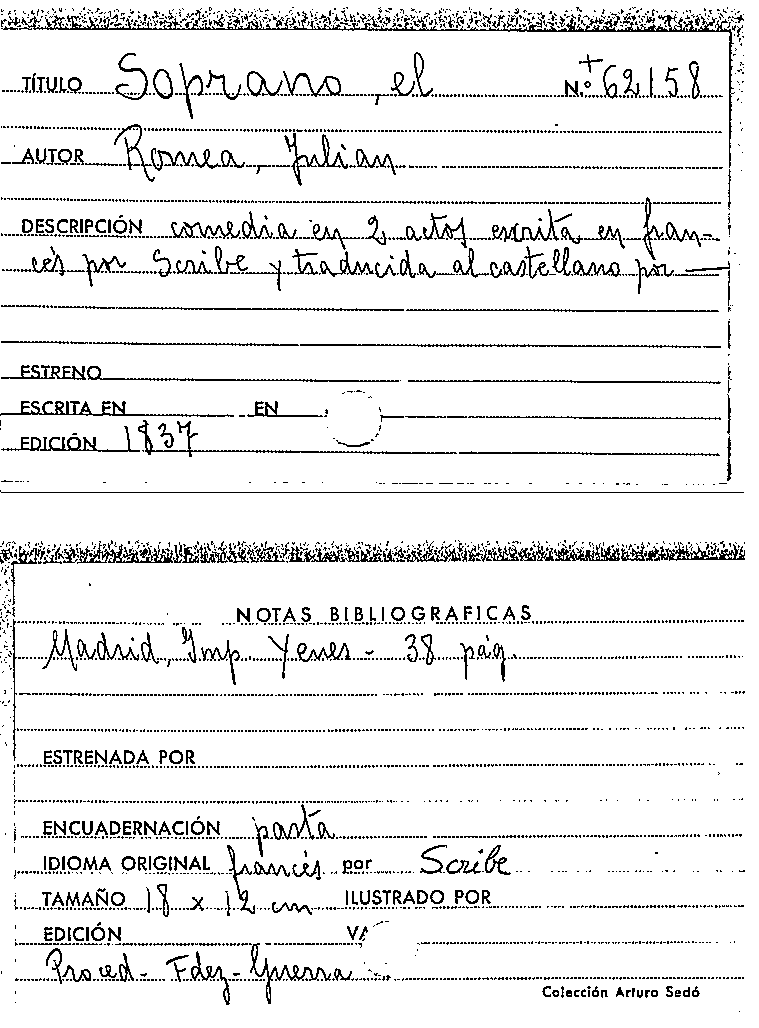 TÍTULO Soprano, el N.º +62158
AUTOR Romea, Julian
DESCRIPCIÓN comedia en 2 actos escrita en fran-
cés por Scribe y traducida al castellano por —
ESTRENO
ESCRITA EN EN
EDICIÓN 1837
NOTAS BIBLIOGRAFICAS
Madrid, Imp. Yenes - 38 pág.
ESTRENADA POR
ENCUADERNACIÓN pasta
IDIOMA ORIGINAL francés por Scribe
TAMAÑO 18 x 12 cm ILUSTRADO POR
EDICIÓN
Proced- Fdez-Guerra
Colección Arturo Sedó